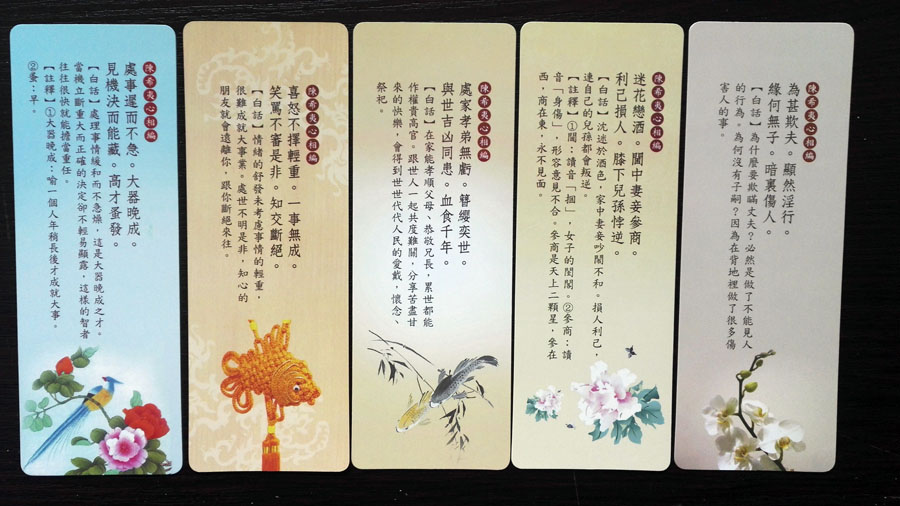 陳希夷心相編
處事遲而不急。大器晚成。
見機決而能藏。高才蚤發。
【白話】處理事情緩和而不急燥，這是大器晚成之才。
當機立斷重大而正確的決定卻不輕易顯露，這樣的智者
往往很快就能擔當重任。
【註釋】①大器晚成：喻一個人年稍長後才成就大事。
②蚤：早。
陳希夷心相編
喜怒不擇輕重。一事無成。
笑罵不審是非。知交斷絕。
【白話】情緒的舒發未考慮事情的輕重，
很難成就大事業。處世不明是非，知心的
朋友就會遠離你，跟你斷絕來往。
陳希夷心相編
處家孝弟無虧。簪纓奕世。
與世吉凶同患。血食千年。
【白話】在家能孝順父母、恭敬兄長，累世都能
作權貴高官。跟世人一起共度難關，分享苦盡甘
來的快樂，會得到世世代代人民的愛戴，懷念、
祭祀。
陳希夷心相編
迷花戀酒。閫中妻妾參商。
利己損人。膝下兒孫悖逆。
【白話】沈迷於酒色，家中妻妾吵鬧不和。損人利己，
連自己的兒孫都會叛逆。
【註釋】①閫：讀音「捆」，女子的閨閣。②參商：讀
音「身傷」，形容意見不合。參商是天上二顆星，參在
西，商在東，永不見面。
陳希夷心相編
為甚欺夫。顯然淫行。
緣何無子。暗裏傷人。
【白話】為什麼要欺瞞丈夫？必然是做了不能見人
的行為。為何沒有子嗣？因為在背地裡做了很多傷
害人的事。